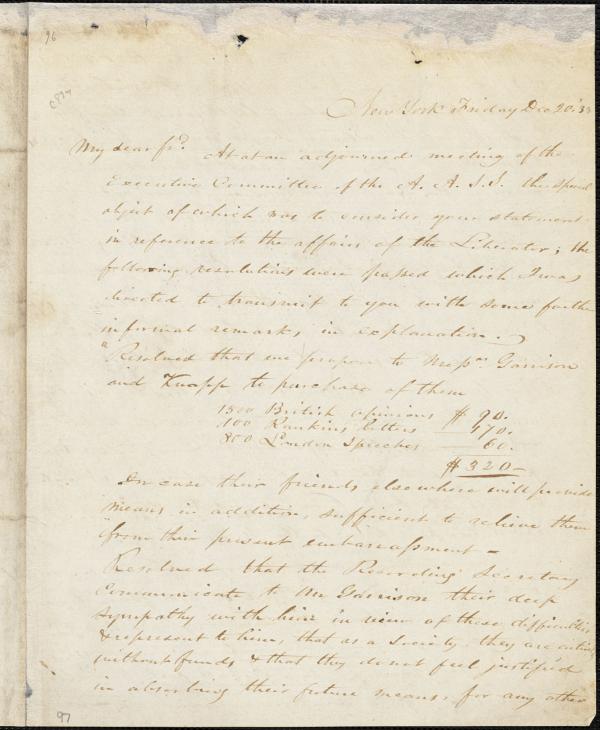 96
New York Friday Dec 20. '33
My dear frd. At at an adjourned meeting of the
Executive Committee of the A. A. S. S. the special
object of which was to consider your statement
in reference to the affairs of the Liberator; the
following resolutions were passed which I was
directed to transmit to you with some further
informal remarks, in explanation.
"Resolved that we propose to Messrs. Garrison
and Knapp to purchase of them
1500 British opinions $ 90.
100 Rankins letters 170.
800 London Speeches 60.
$ 320
In case their friends elsewhere will provide
means in addition, sufficient to relieve them
from their present embarrassment —
Resolved that the Recording Secretary
Communicate to Mr Garrison their deep
sympathy with him in view of these difficulties
& represent to him, that as a Society they are entirely
without funds & that they do not feel justified
in absorbing their future means, for any other
97